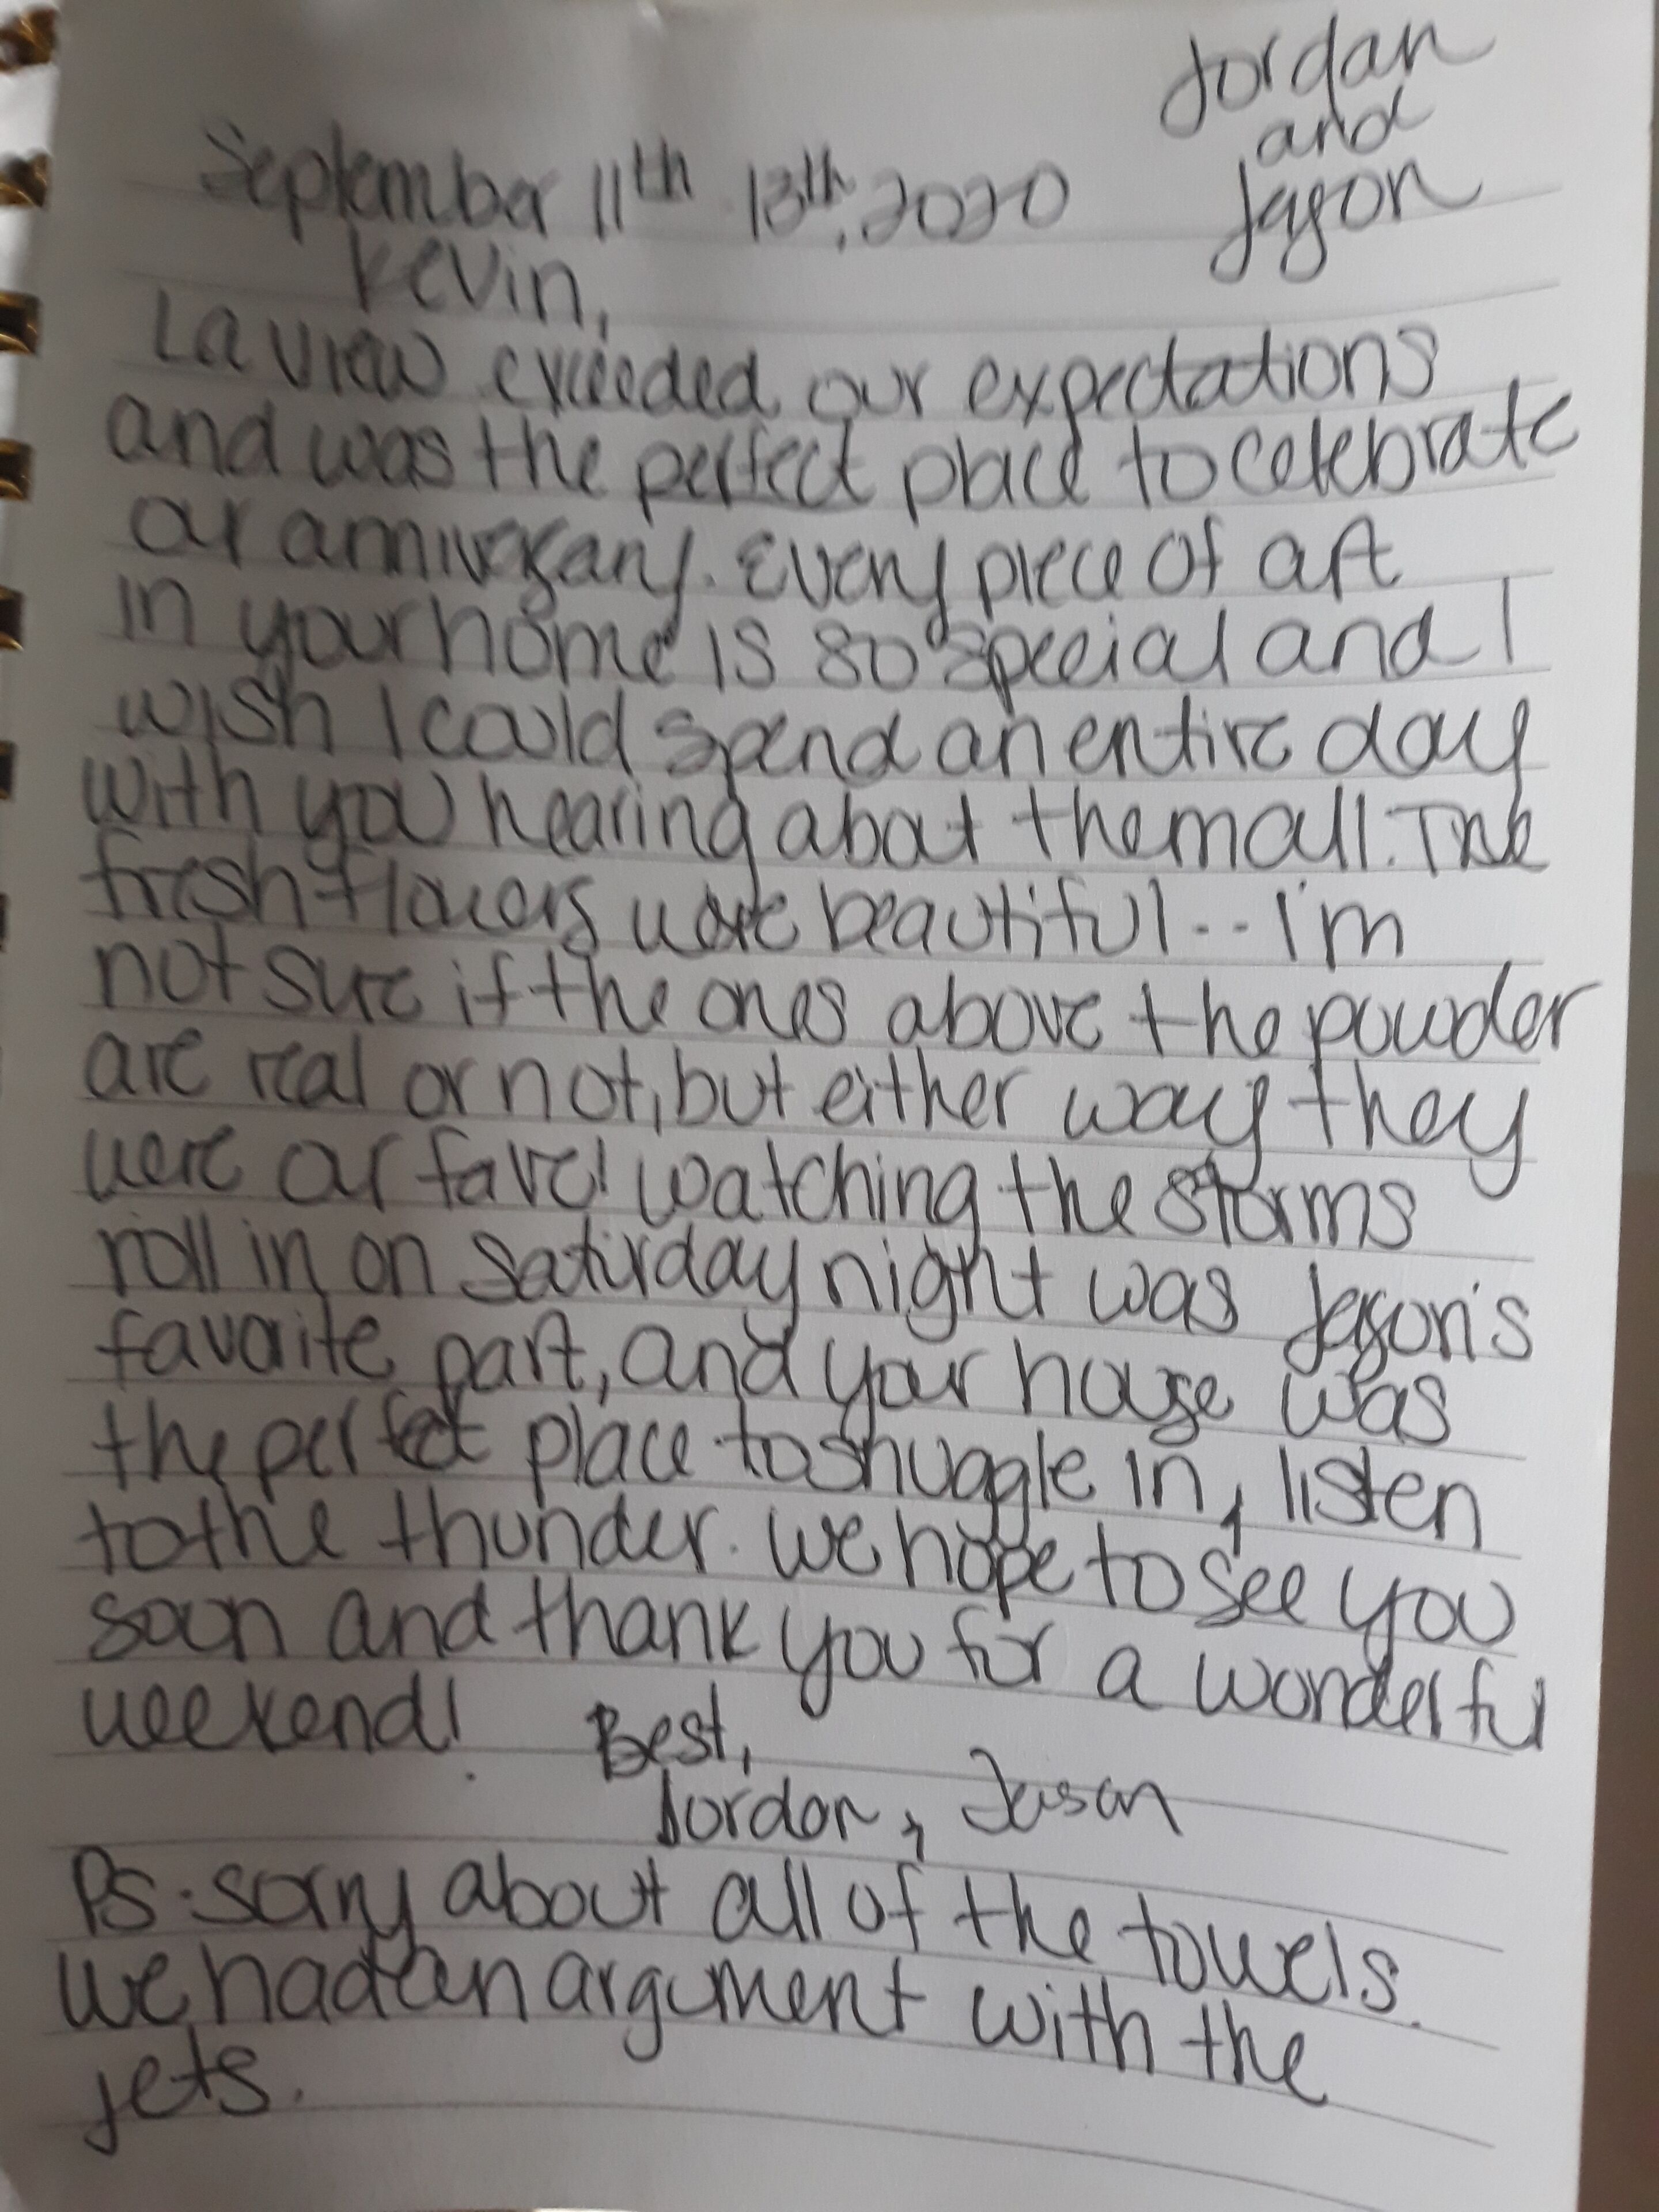 Jordan
and
Jason
September 11th 13th, 2020
Kevin,
La View exceeded our expectations
and was the perfect place to celebrate
our anniversary. Every piece of art
in your home is so special and I
wish I could spend an entire day
with you hearing about them all. The
fresh flowers were beautiful... I'm
not sure if the ones above the powder
are real or not, but either way they
were our fave! Watching the storms
roll in on Saturday night was Jason's
favorite part, and your house was
the perfect place to snuggle in, listen
to the thunder. We hope to see you
soon and thank you for a wonderful
weekend! Best,
Jordan, Jason
PS. Sorry about all of the towels.
We had an argument with the
jets.